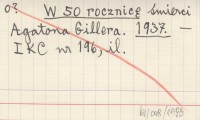 W 50 rocznicę śmierci
Agatona Gillera. 1937. —
IKC nr 196, il.